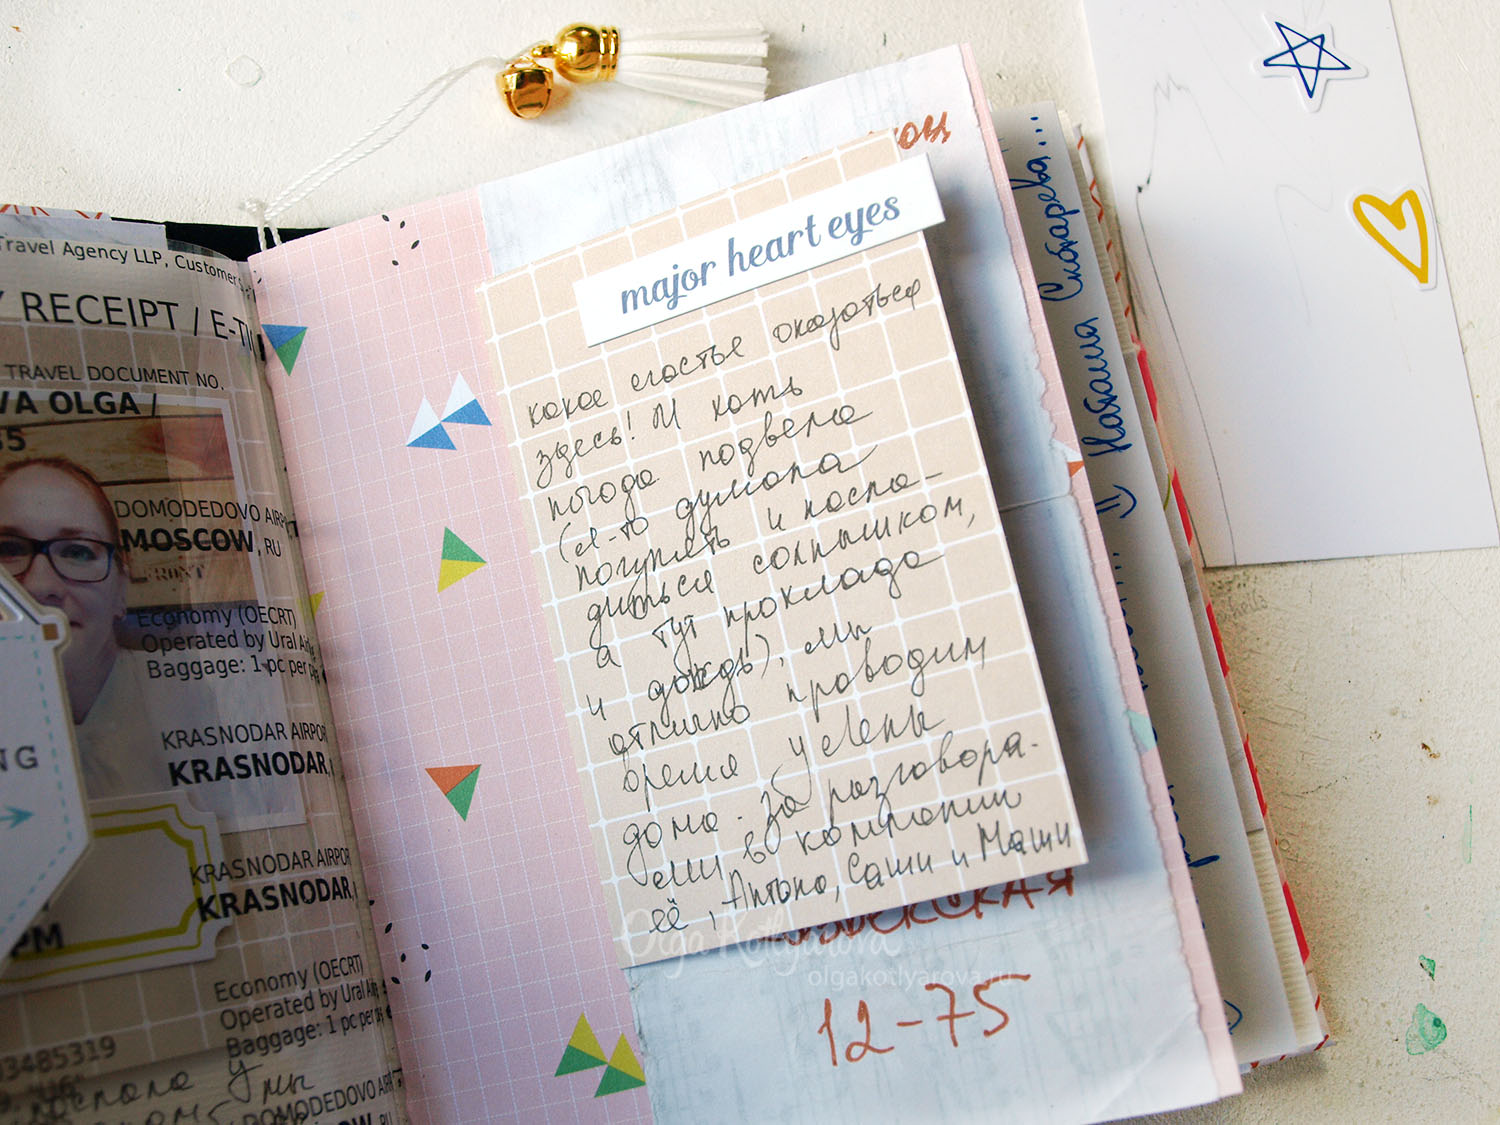 Travel Agency LLP, Customer
RECEIPT / E-TI
TRAVEL DOCUMENT NO.
VA OLGA /
DOMODEDOVO AIRP
MOSCOW, RU
Economy (OECRT)
Operated by Ural Air
Baggage: 1 pc per
KRASNODAR AIRPOR
KRASNODAR,
NG
KRASNODAR AIRPORT
KRASNODAR,
PM
Economy (OECRT)
Operated by Ural Air
Baggage: 1 pc per
03485319
У
мы
DOMODEDOVO AI
major heart eyes
какое счастье оказаться
здесь! И хоть
погода подвела
(я-то думала
погулять и насла-
диться солнышком,
а тут прохлада
и дождь), мы
отлично проводим
время у Лены
дома - за разговора-
ми в компании
её, Антона, Саши и Маши
12-75
Olga Kotlyarova
olgakotlyarova.ru
Наташа Скобарева...